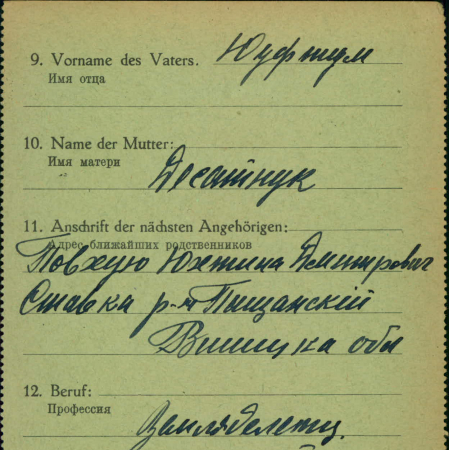 9. Vorname des Vaters. Юуфтим
Имя отца
10. Name der Mutter:
Имя матери
Десатнук
11. Anschrift der nächsten Angehörigen:
Адрес ближайших родственников
Повхую Юхтина Дмитрович
Ставка р-н Пищанский
обл
12. Beruf:
Профессия